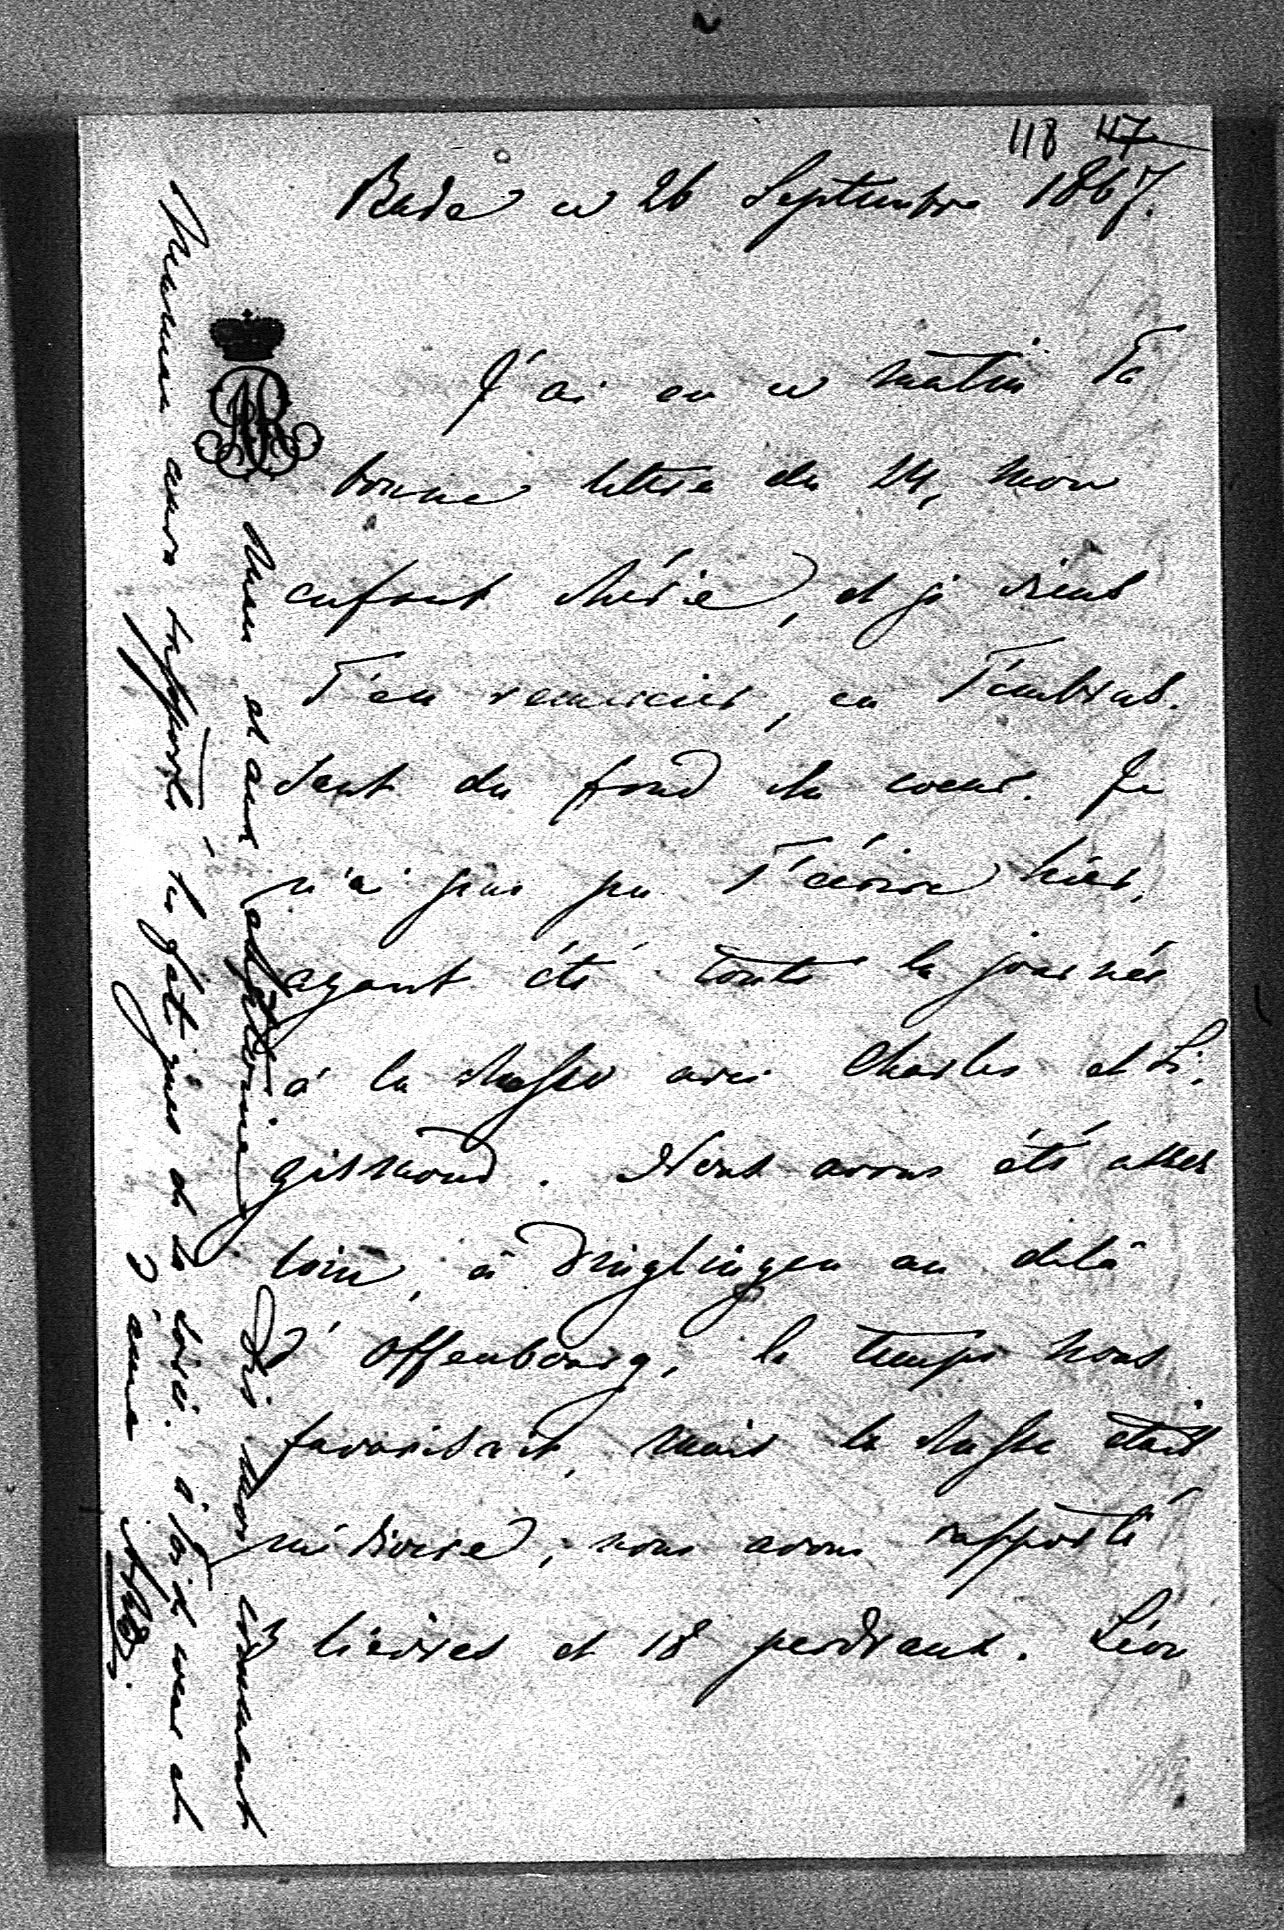 118 47
Bade ce 26 Septembre 1867.
J'ai eu ce matin Ta
bonne lettre du 24, mon
enfant chérie, et je viens
T'en remercier, en T'embras-
sant du fond du coeur. Je
n'ai pas pu T'écrire hier,
ayant été toute la journée
à la chasse avec Charles et Si-
gismond. Nous avons été assez
loin, à Dinglingen au delà
d'Offenbourg, le temps nous
favorisait, mais la chasse était
médiocre, nous avons rapporté
3 lièvres et 18 perdreaux. Léon
mon et aux Dis moi comment
Maman aura supporté les fatigues de la à Toi de coeur et
d'âme